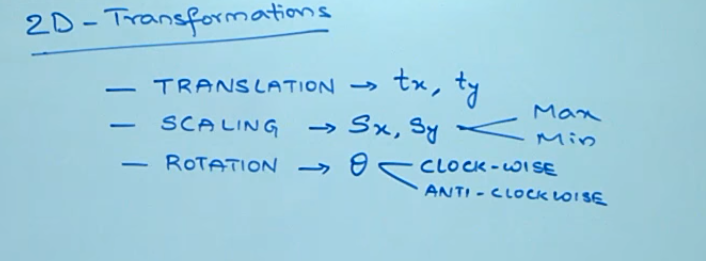 2D - Transformations
— TRANSLATION → tx, ty
— SCALING → Sx, Sy Max
Min
— ROTATION → θ CLOCK-WISE
ANTI - CLOCKWISE